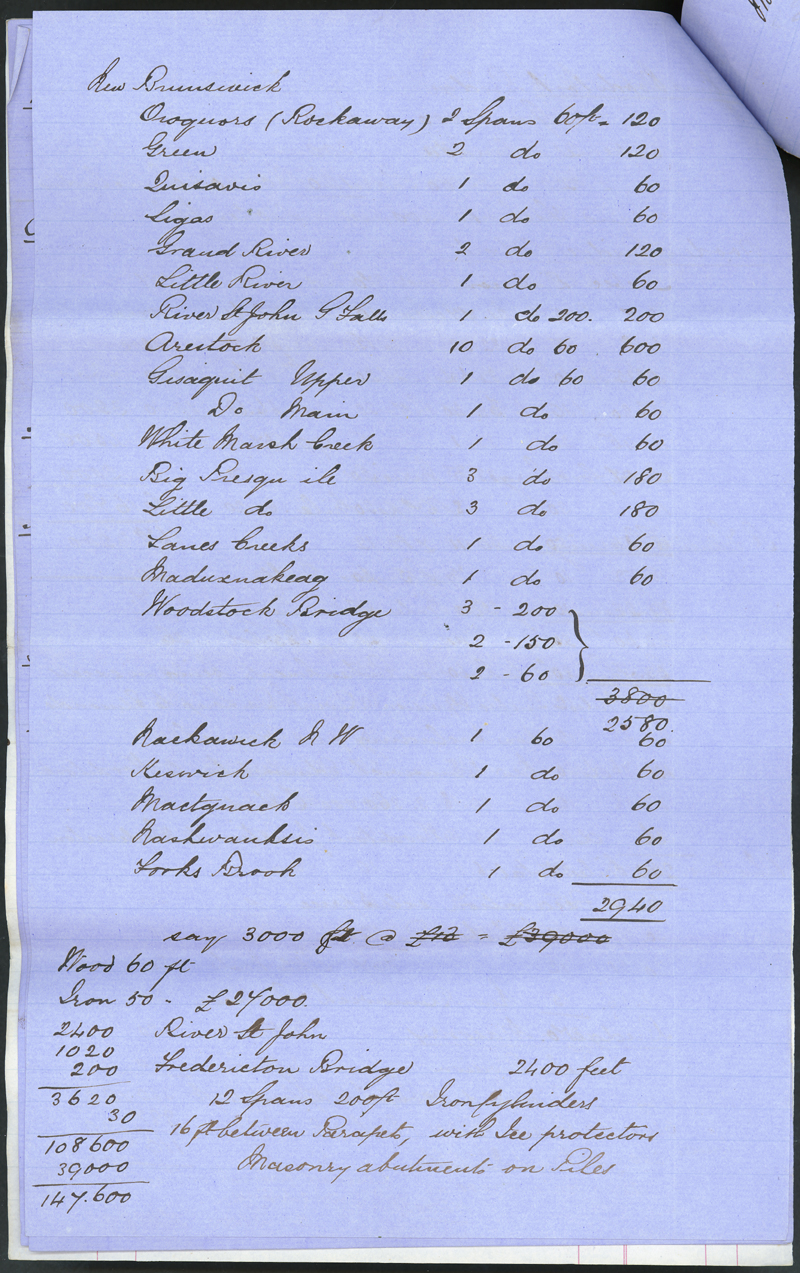 New Brunswick
Oroquors (Rockaway) 2 Spans 60ft = 120
Green 2 do 120
Quisavis 1 do 60
Sigas 1 do 60
Grand River 2 do 120
Little River 1 do 60
River St John G Falls 1 do 200. 200
Arestock 10 do 60 600
Gisaquit Upper 1 do 60 60
Do Main 1 do 60
White Marsh Creek 1 do 60
Big Presqu ile 3 do 180
Little do 3 do 180
Lanes Creeks 1 do 60
Maduxnakeag 1 do 60
Woodstock Bridge 3 - 200
2 - 150
2 - 60
3800
2580.
Rackawick N W 1 60 60
Keswick 1 do 60
Mactquack 1 do 60
Nashwauksis 1 do 60
Forks Brook 1 do 60
2940
say 3000 ft @ £13 = £39000
Wood 60 ft
Iron 50 - £27000.
2400 River St John
1020
200 Fredericton Bridge 2400 feet
3620 12 Spans 200ft Iron Cylinders
30
108600 16 ft between Parapets, with Ice protectors
39000 Masonry abutments on Piles
147.600